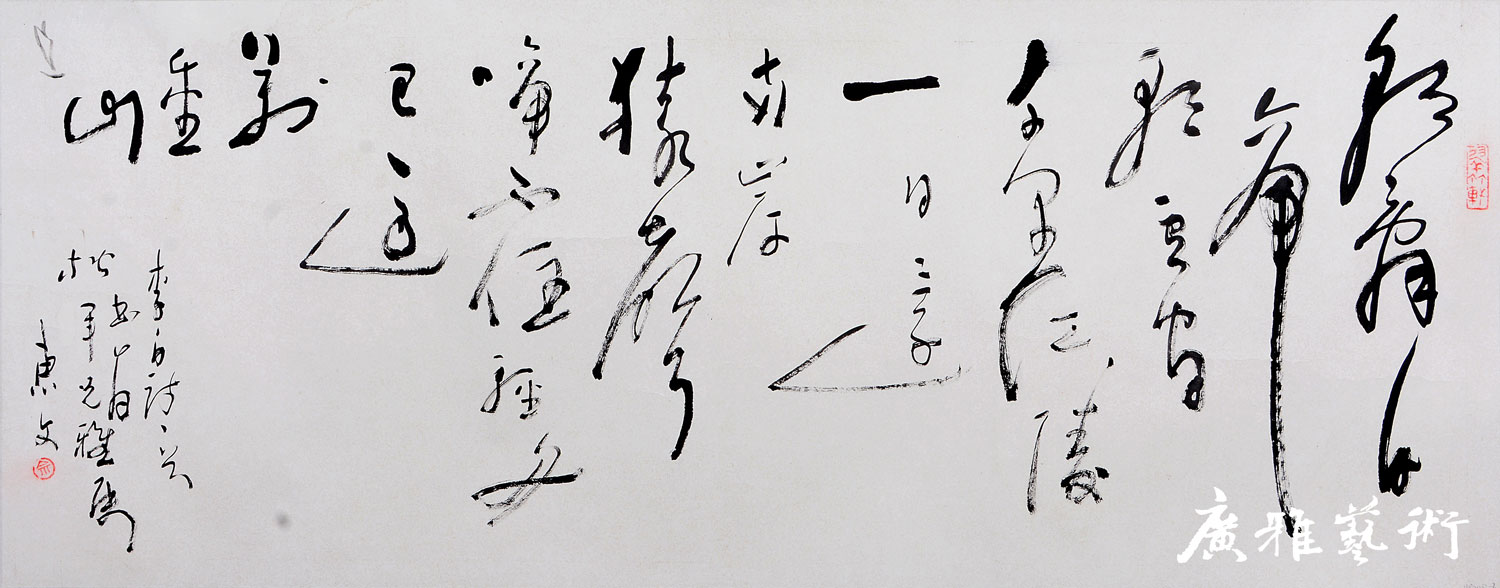 朝辭白
帝
彩雲間
千里江陵
一日還
兩岸
猿聲
啼不住輕舟
已過
萬
重
山
李白詩
兄雅屬
東文
廣雅藝術